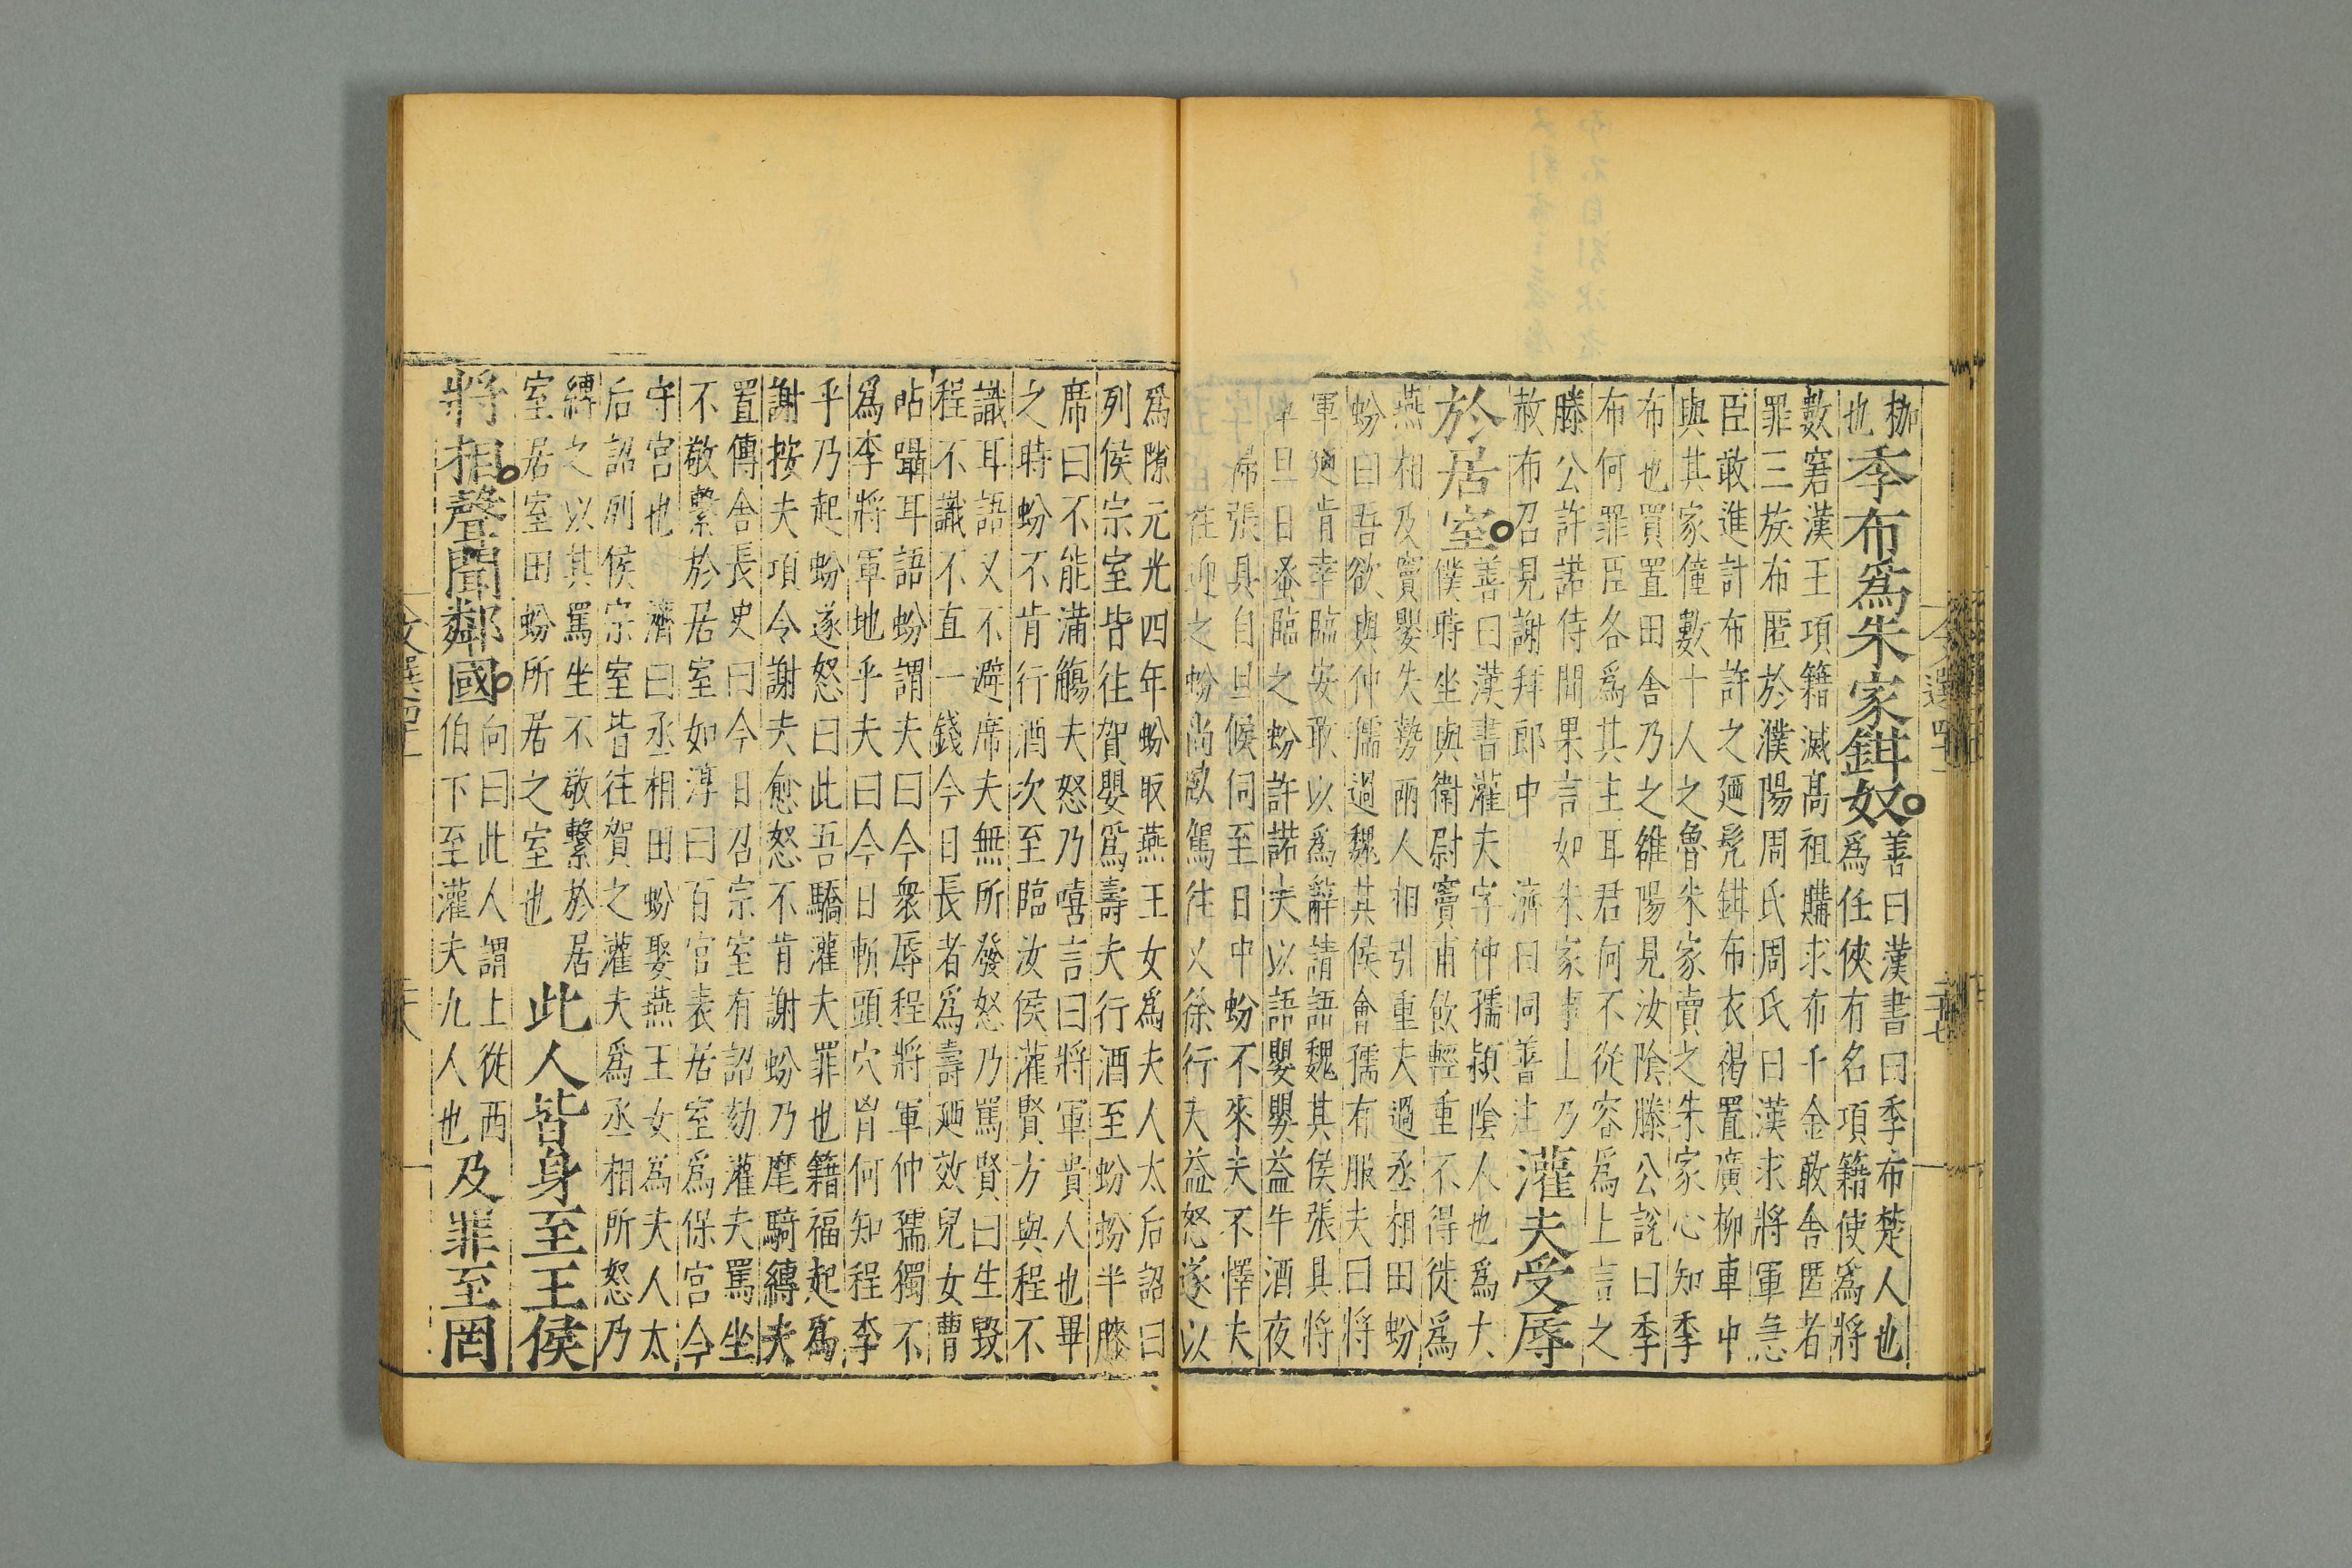 枷
也季布爲朱家鉗奴善曰漢書曰季布楚人也
爲任俠有名項籍使爲將
數窘漢王項籍滅高祖購求布千金敢舍匿者
罪三族布匿於濮陽周氏周氏曰漢求將軍急
臣敢進計布許之廼髠鉗布衣褐置廣柳車中
與其家僮數十人之魯朱家賣之朱家心知季
布也買置田舍乃之雒陽見汝陰滕公說曰季
布何罪臣各爲其主耳君何不從容爲上言之
滕公許諾侍閒果言如朱家事上乃
赦布召見謝拜郎中 濟曰同善注灌夫受辱
於居室善曰漢書灌夫字仲孺潁陰人也爲大
僕時坐與衛尉竇甫飲輕重不得徙爲
燕相及竇嬰失勢兩人相引重夫過丞相田蚡
蚡曰吾欲與仲孺過魏其侯會孺有服夫曰將
軍廼肯幸臨安敢以爲辭請語魏其侯張具將
軍旦日蚤臨之蚡許諾夫以語嬰嬰益牛酒夜
埽張具自旦候伺至日中蚡不來夫不懌夫
徃迎之蚡尚臥駕往又徐行夫益怒遂以
爲隙元光四年蚡取燕王女爲夫人太后詔曰
列侯宗室皆往賀嬰爲壽夫行酒至蚡蚡半膝
席曰不能滿觴夫怒乃嘻言曰將軍貴人也畢
之時蚡不肯行酒次至臨汝侯灌賢方與程不
識耳語又不避席夫無所發怒乃罵賢曰生毀
程不識不直一錢今日長者爲壽廼效兒女曹
呫躡耳語蚡謂夫曰今衆辱程將軍仲孺獨不
爲李將軍地乎夫曰今日斬頭穴胷何知程李
乎乃起蚡遂怒曰此吾驕灌夫罪也籍福起爲
謝按夫項令謝夫愈怒不肯謝蚡乃麾騎縛夫
置傳舍長史曰今日召宗室有詔劾灌夫罵坐
不敬繫於居室如淳曰百官表居室爲保宮今
守宮也 濟曰丞相田蚡娶燕王女爲夫人太
后詔列侯宗室皆往賀之灌夫爲丞相所怒乃
縛之以其罵坐不敬繫於居
室居室田蚡所居之室也 此人皆身至王侯
將相聲聞鄰國向曰此人謂上從西
伯下至灌夫九人也及罪至罔